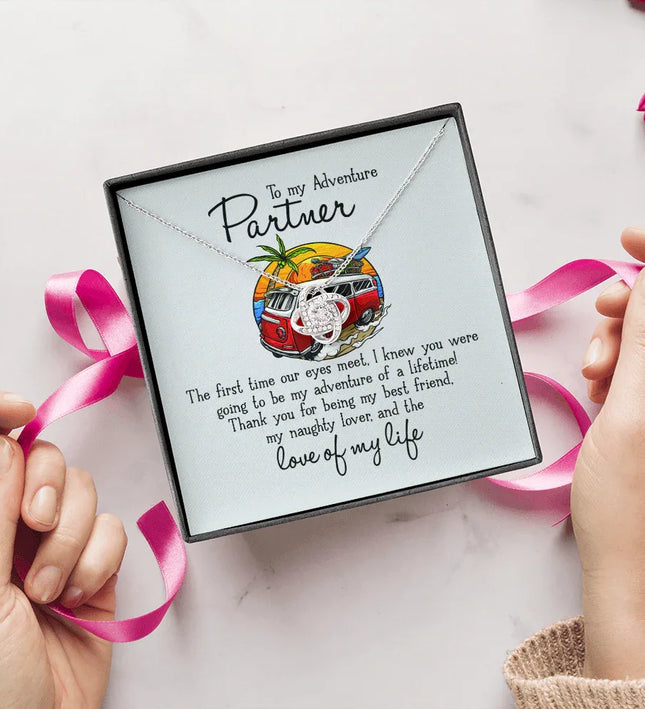 To my Adventure
Partner
The first time our eyes meet, I knew you were
going to be my adventure of a lifetime!
Thank you for being my best friend,
my naughty lover, and the
love of my life